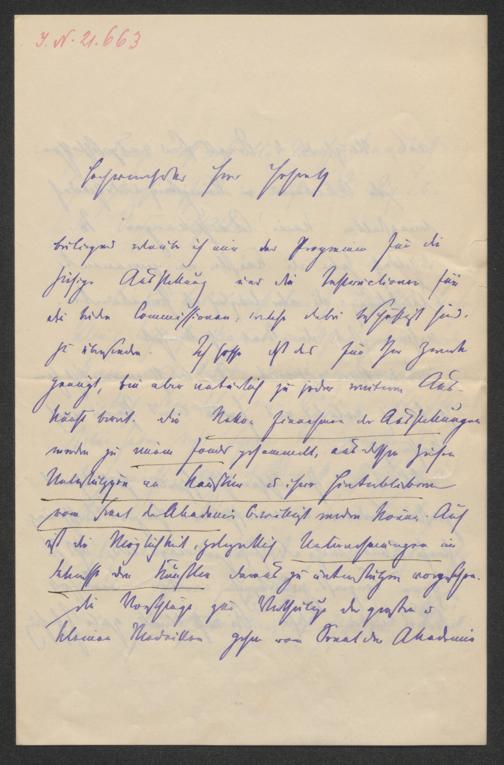 J. N. 21.663
Hochverehrter Herr Hofrath
beiliegend erlaube ich mir das Programm für die
hiesige Ausstellung und die Instructionen für
die beiden Commissionen, welche dabei beschäftigt sind,
zu übersenden. Ich hoffe daß das für Ihre Zwecke
genügt, bin aber natürlich zu jeder weiteren Aus-
kunft bereit. Die Netto Einnahmen der Ausstellungen
werden zu einem Fonds gesammelt, aus dessen Zinsen
Unterstützungen an Künstler u ihre Hinterbliebene
vom Senat der Akademie bewilligt werden können. Auch
ist die Möglichkeit, gelegentlich Unternehmungen im
Interesse der Künstler daraus zu unterstützen vorgesehen.
Die Vorschläge zur Vertheilung der großen u
kleinen Medaillen gehen vom Senat der Akademie